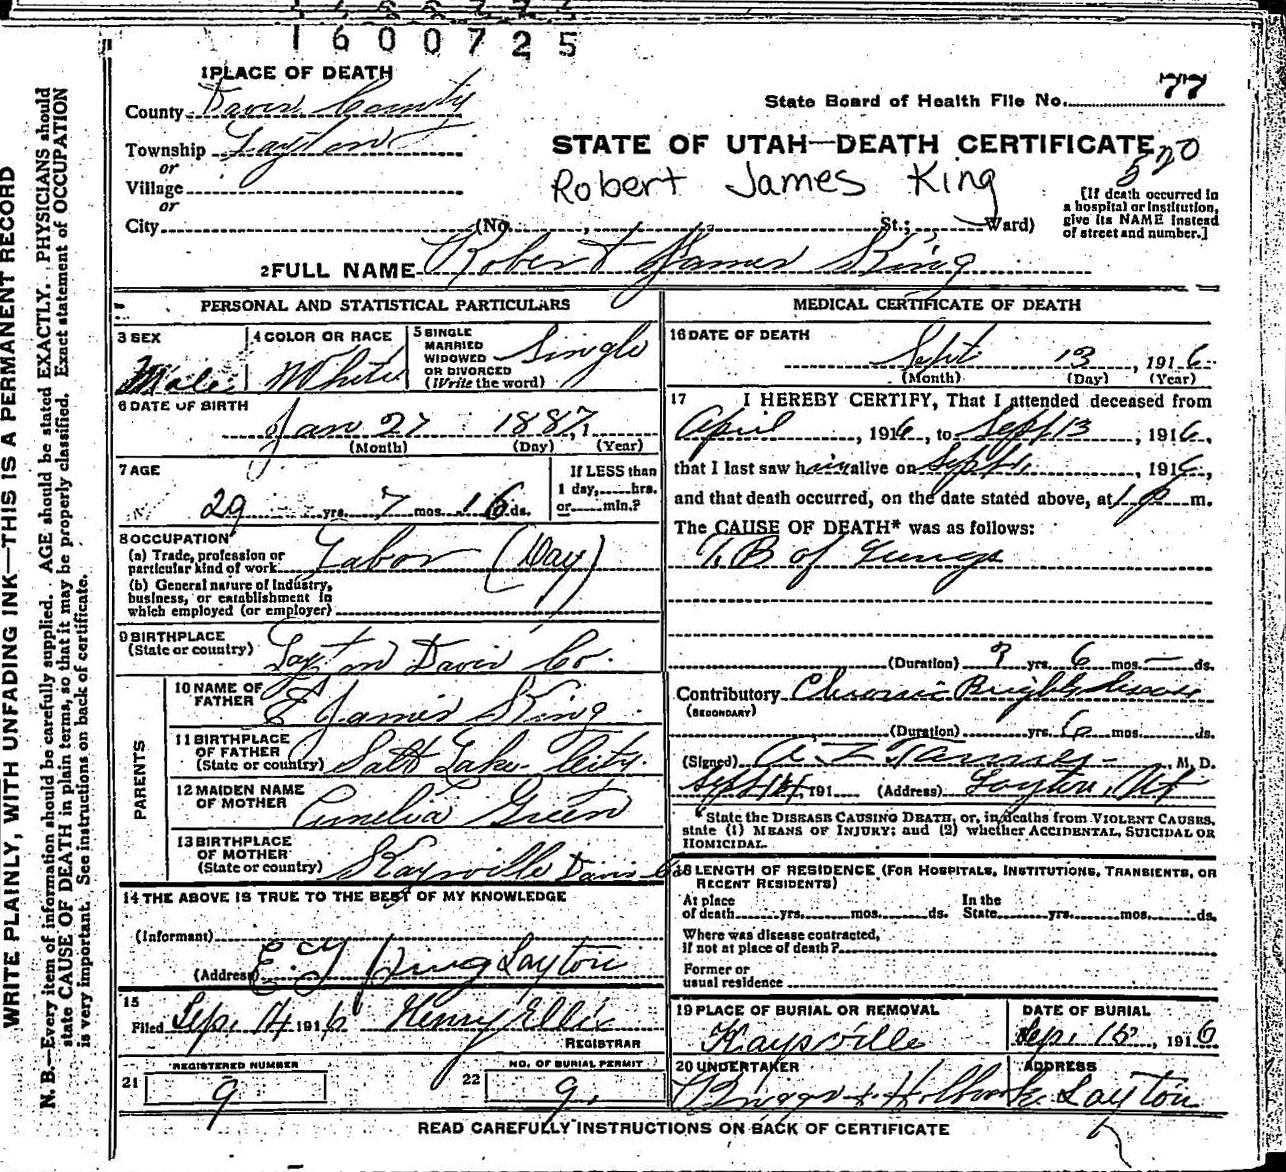 1600725
1 PLACE OF DEATH
County Davis County
State Board of Health File No. 77
Township Layton
or
Village
or
City (No. , St.; Ward)
STATE OF UTAH—DEATH CERTIFICATE
520
Robert James King
[If death occurred in
a hospital or institution,
give its NAME instead
of street and number.]
2 FULL NAME Robert James King
PERSONAL AND STATISTICAL PARTICULARS
3 SEX
Male
4 COLOR OR RACE
White
5 SINGLE
MARRIED
WIDOWED
OR DIVORCED
(Write the word)
Single
6 DATE OF BIRTH
Jan 27 1887, 1
(Month) (Day) (Year)
7 AGE
29 yrs. 7 mos. 16 ds.
If LESS than
1 day, hrs.
or min.?
8 OCCUPATION
(a) Trade, profession or
particular kind of work Labor (Day)
(b) General nature of Industry,
business, or establishment in
which employed (or employer)
9 BIRTHPLACE
(State or country) Layton Davis Co.
PARENTS
10 NAME OF
FATHER E James King
11 BIRTHPLACE
OF FATHER
(State or country) Salt Lake City.
12 MAIDEN NAME
OF MOTHER Amelia Green
13 BIRTHPLACE
OF MOTHER
(State or country) Kaysville Davis Co
14 THE ABOVE IS TRUE TO THE BEST OF MY KNOWLEDGE
(Informant)
(Address) E. J King Layton
15
Filed Sep. 14 1916 Henry Ellis
REGISTRAR
21 REGISTERED NUMBER
9
22 NO. OF BURIAL PERMIT
9.
MEDICAL CERTIFICATE OF DEATH
16 DATE OF DEATH
Sept 13, 1916
(Month) (Day) (Year)
17 I HEREBY CERTIFY, That I attended deceased from
April, 1916, to Sept 13, 1916,
that I last saw him alive on Sept, 1916,
and that death occurred, on the date stated above, at 1 P m.
The CAUSE OF DEATH* was as follows:
T. B of Lungs
(Duration) yrs. 6 mos. — ds.
Contributory Chronic Brights disease
(SECONDARY)
(Duration) yrs. 6 mos. ds.
(Signed) A. Z Tanner, M. D.
Sept 14, 191 (Address) Layton, Ut
* State the DISEASE CAUSING DEATH, or, in deaths from VIOLENT CAUSES,
state (1) MEANS OF INJURY; and (2) whether ACCIDENTAL, SUICIDAL OR
HOMICIDAL.
18 LENGTH OF RESIDENCE (FOR HOSPITALS, INSTITUTIONS, TRANSIENTS, OR
RECENT RESIDENTS)
At place
of death yrs. mos. ds.
In the
State yrs. mos. ds.
Where was disease contracted,
if not at place of death?
Former or
usual residence
19 PLACE OF BURIAL OR REMOVAL
Kaysville
DATE OF BURIAL
Sep. 15, 1916
20 UNDERTAKER
Briggs & Holbrook
ADDRESS
Layton
READ CAREFULLY INSTRUCTIONS ON BACK OF CERTIFICATE
WRITE PLAINLY, WITH UNFADING INK—THIS IS A PERMANENT RECORD
N. B.—Every item of information should be carefully supplied. AGE should be stated EXACTLY. PHYSICIANS should
state CAUSE OF DEATH in plain terms, so that it may be properly classified. Exact statement of OCCUPATION
is very important. See instructions on back of certificate.